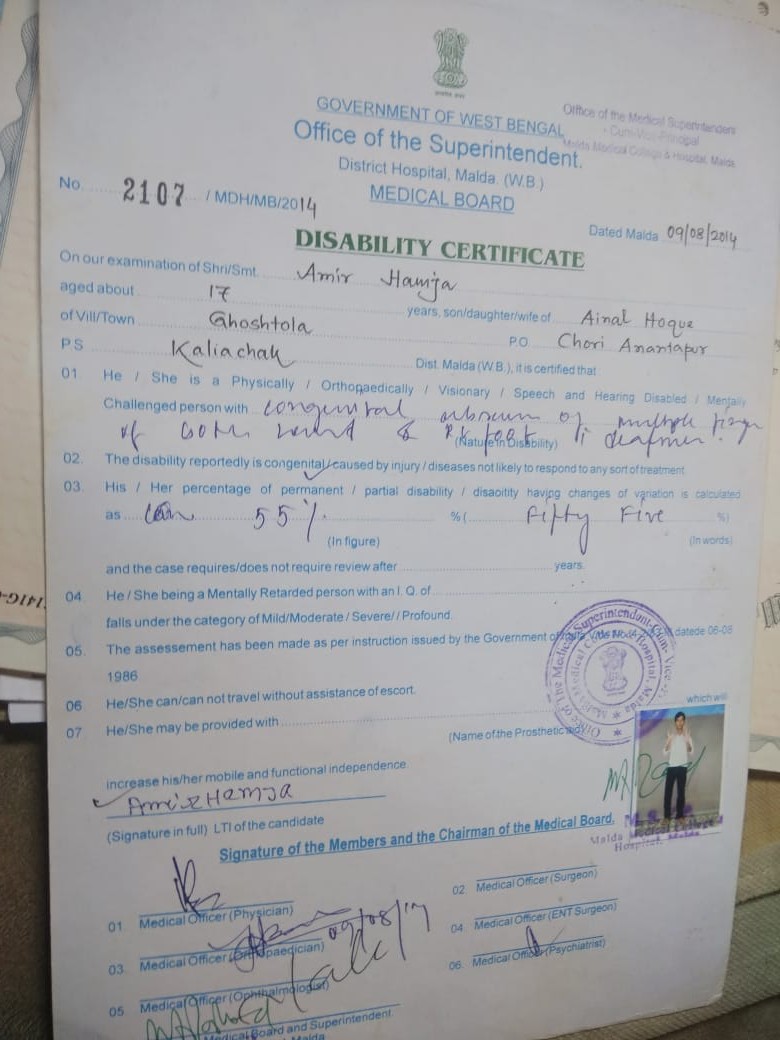 GOVERNMENT OF WEST BENGAL
Office of the Medical Superintendent
Office of the Superintendent.
Malda Medical College & Hospital, Malda
District Hospital, Malda. (W.B.)
MEDICAL BOARD
No. 2107 / MDH/MB/2014
Dated Malda 09/08/2014
DISABILITY CERTIFICATE
On our examination of Shri/Smt. Amir Hamja
aged about 17 years, son/daughter/wife of Ainal Hoque
of Vill/Town Ghoshtola P.O. Chori Anantapur
P.S Kaliachak Dist. Malda (W.B.), it is certified that
01. He / She is a Physically / Orthopaedically / Visionary / Speech and Hearing Disabled / Mentally
Challenged person with congenital absence of multiple finger
of both hand & Rt foot deafness.
(Nature in Disability)
02. The disability reportedly is congenital/caused by injury / diseases not likely to respond to any sort of treatment
03. His / Her percentage of permanent / partial disability / disaoitity having changes of variation is calculated
as 55% %( Fifty Five %)
(In figure) (In words)
and the case requires/does not require review after years.
04. He / She being a Mentally Retarded person with an I. Q. of
falls under the category of Mild/Moderate / Severe/ / Profound.
05. The assessement has been made as per instruction issued by the Government of datede 06-08
1986
06 He/She can/can not travel without assistance of escort.
07 He/She may be provided with which will
(Name of the Prosthetic aid)
increase his/her mobile and functional independence.
Amir Hamja
(Signature in full) LTI of the candidate
Malda Medical College &
Hospital, Malda
Signature of the Members and the Chairman of the Medical Board.
01. Medical Officer (Physician)
02 Medical Officer (Surgeon)
03. Medical Officer (Orthopaedician)
04. Medical Officer (ENT Surgeon)
05. Medical Officer (Ophthalmologist)
06. Medical Officer (Psychiatrist)
Medical Board and Superintendent
Malda